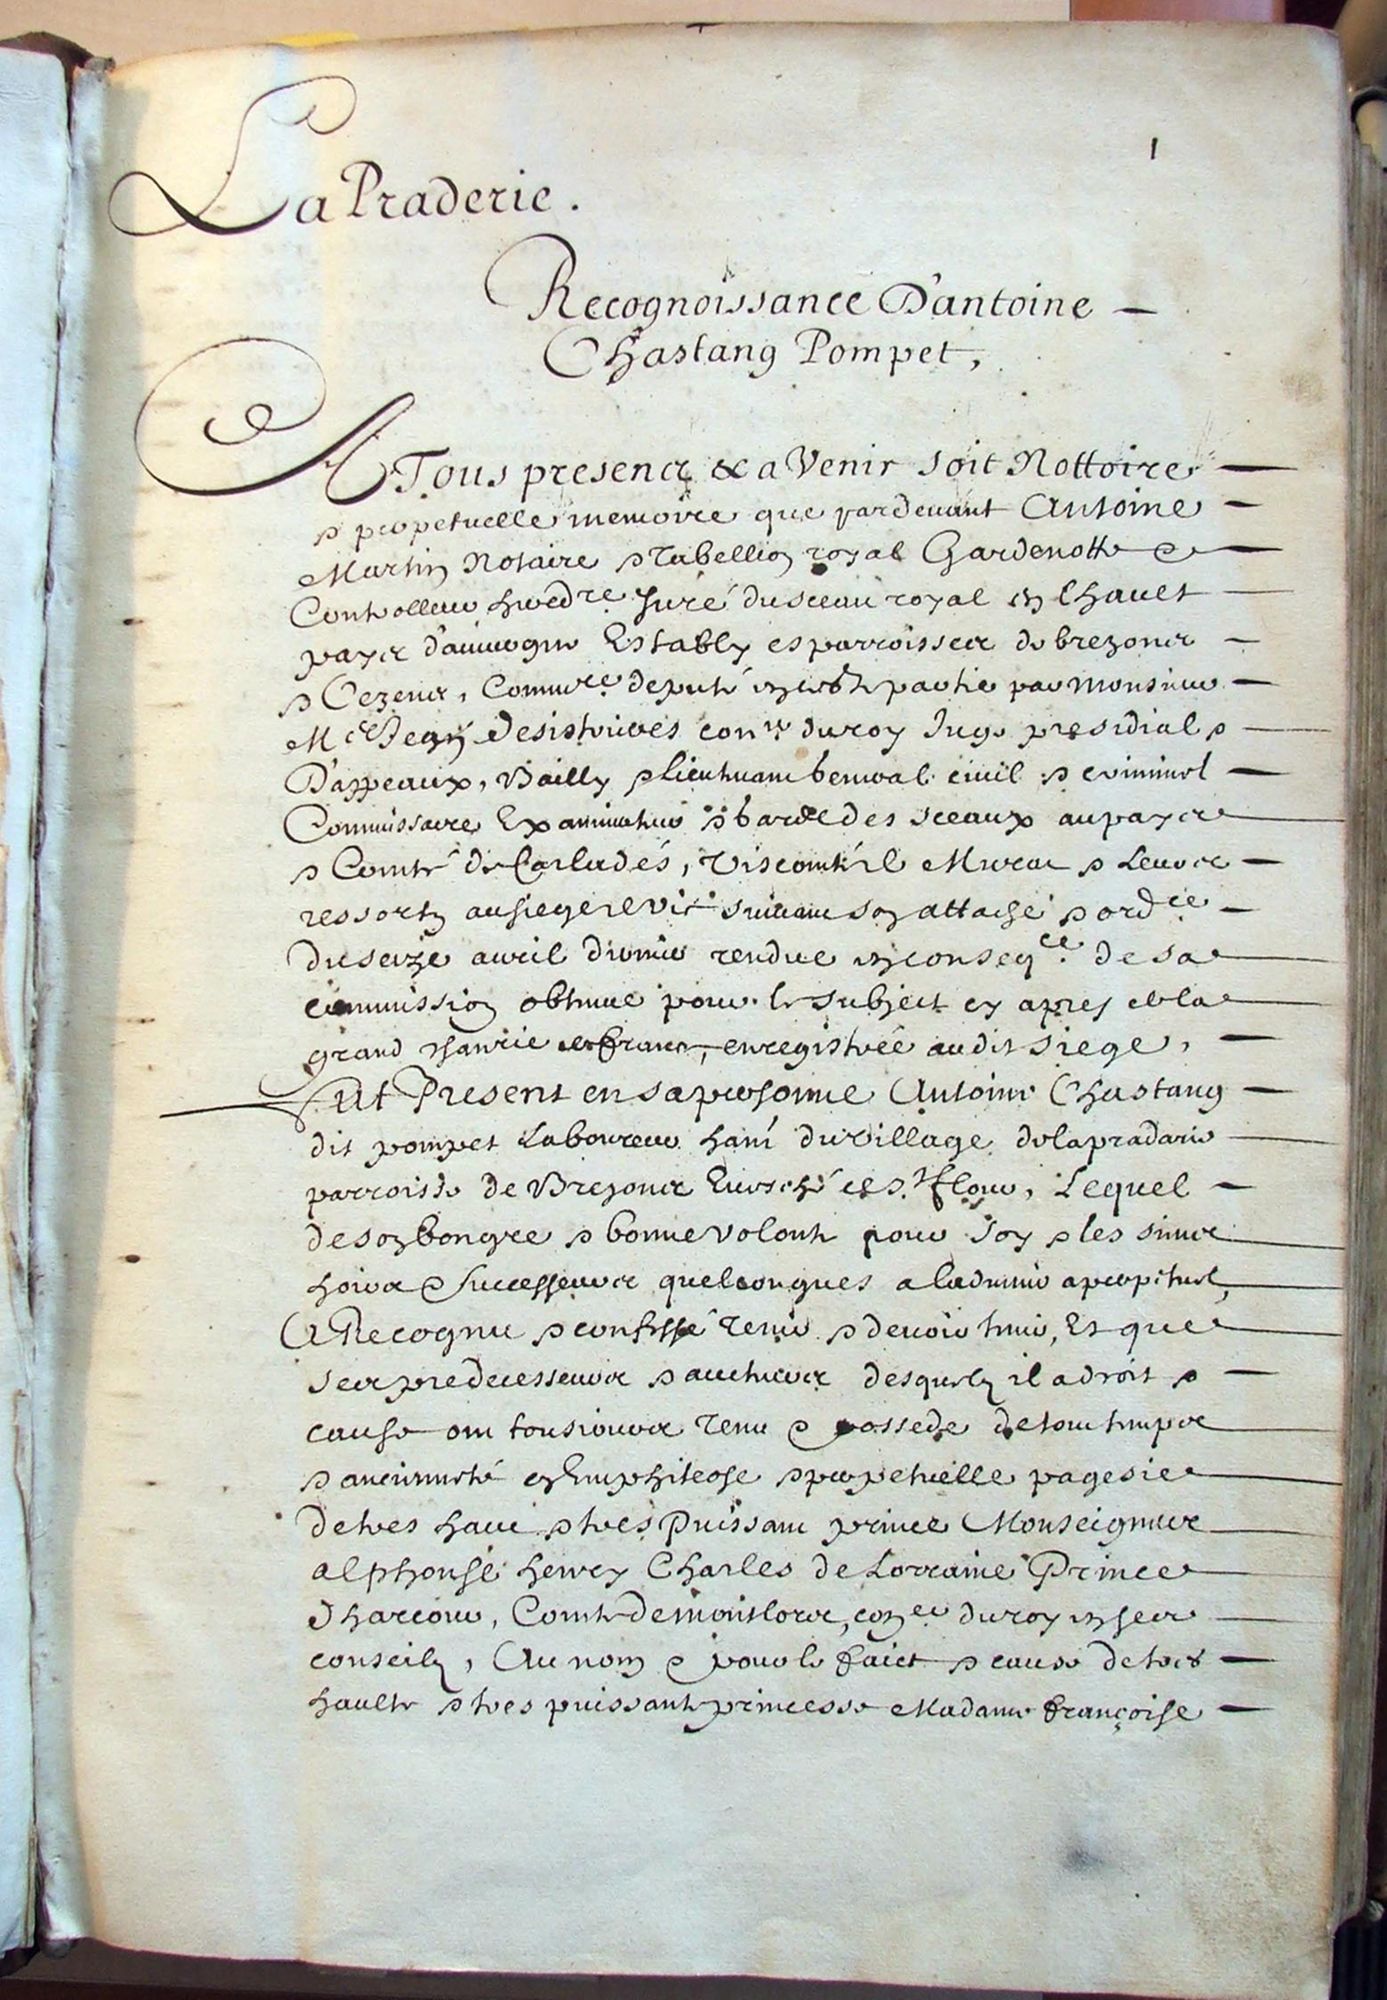 1
La Praderie.
Recognoissance D'antoine
Chastang Pompet,
A Tous presentz & a Venir soit Nottoire
& perpetuelle memoire que pardeuant Antoine
Martin Notaire & Tabellion royal Gardenotte &
Controlleur heredre Juré du sceau royal en lhault
payz d'auuergne Estably es parroisses de brezons
& Cezens, Commre deputé en partie par Monsieur
Me Jean Desistrieres conr du roy Juge presidial &
D'appeaux, Bailly & Lieutenant General ciuil & criminel
Commissaire Examinateur & Garde des sceaux au payz
& Comté de Carladés, Viscomté de Murat & Leurs
ressortz au siege de Vic suiuant son attache & ordce
du seize auril dernier rendue en conseqce de sa
commission obtenue pour le subject cy apres de la
grand chanrie de france, enregistrée audit siege,
Fut Present en sa personne Antoine Chastang
dit pompet Laboureur hant du village de lapradarie
parroisse de Brezons Euesché de St flour, Lequel
de son bon gre & bonne volonte pour soy & les siens
hoirs & successeurs quelconques a laduenir a perpetuel,
A Recognu & confessé tenir & deuoir tenir, Et que
ses predecesseurs & autheurs desquelz il a droit &
cause ont tousiours tenu & possede de tout temps
& ancienneté en Emphiteose & perpetuelle pagesie
de tres haut & tres puissant prince Monseigneur
alphonse henry Charles de Lorraine Prince
dharcour, Comte de montlor, coner du roy en ses
conseilz, Au nom & pour le faict & cause de tres
haulte & tres puissante princesse Madame françoise